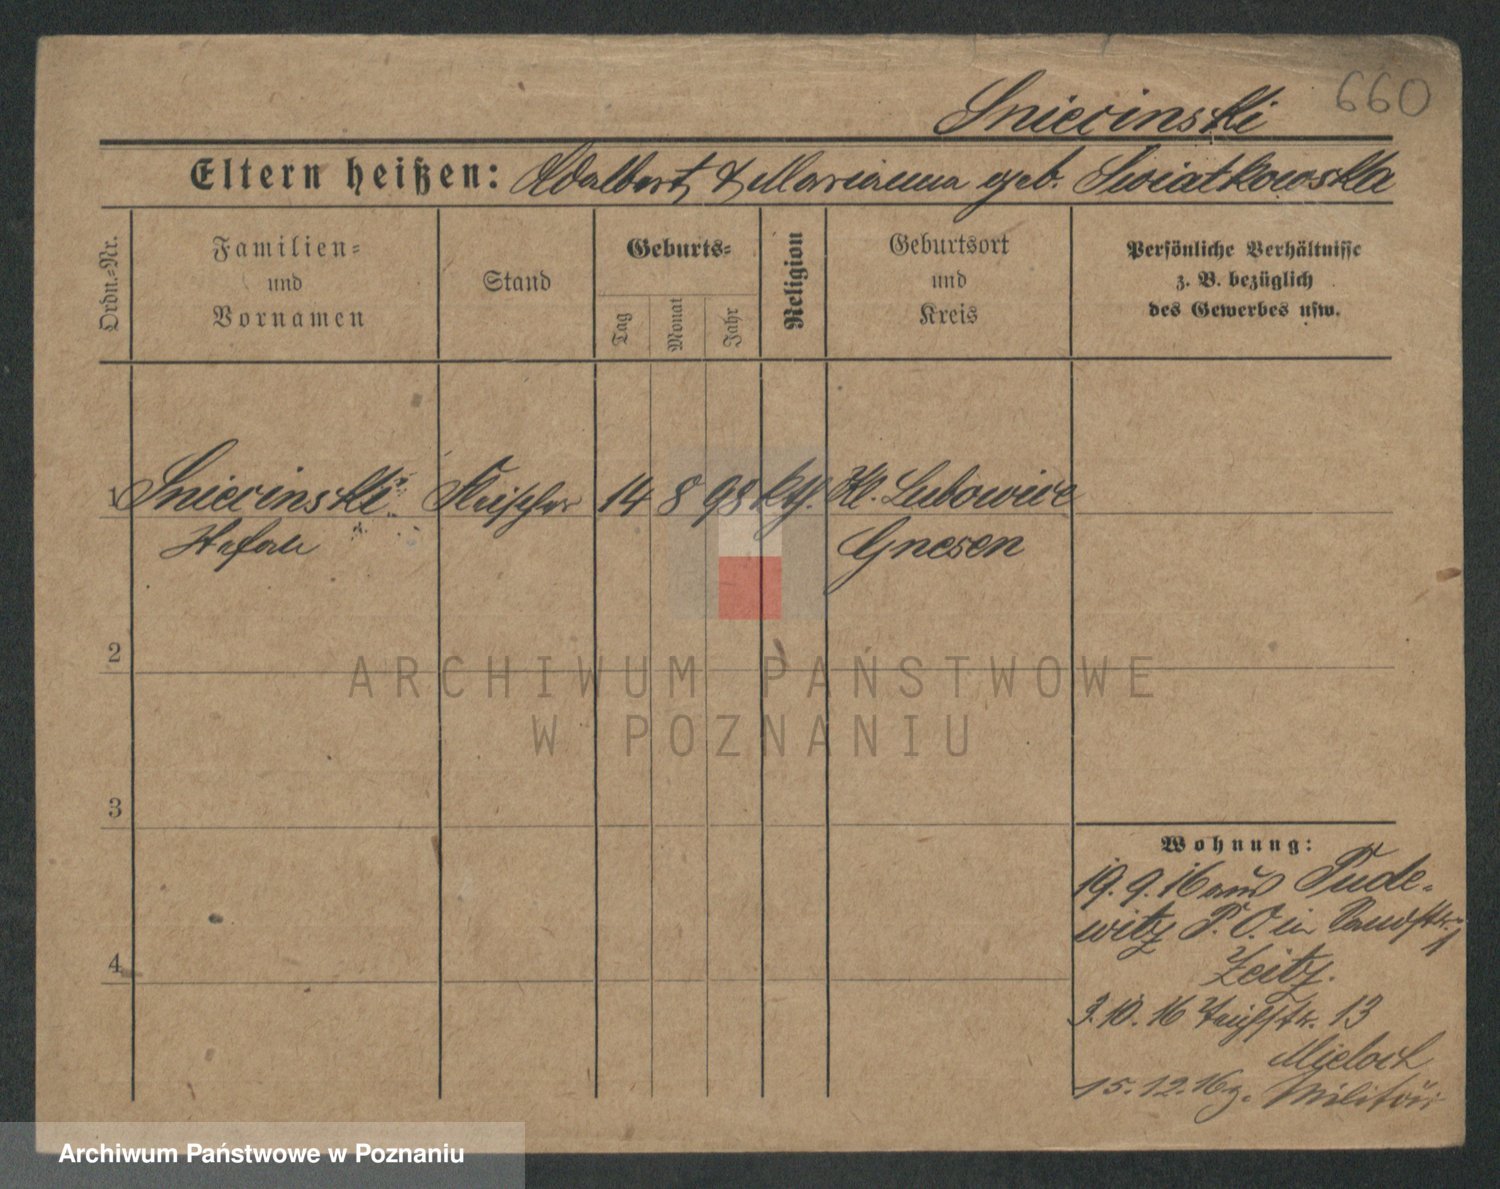 660
Sniecinski
Eltern heißen: Adalbert & Marianna geb. Swiatkowska
Ordn.-Nr.
Familien-
und
Vornamen
Stand
Geburts-
Tag
Monat
Jahr
Religion
Geburtsort
und
Kreis
Persönliche Verhältnisse
z. B. bezüglich
des Gewerbes usw.
1 Sniecinski Fleischer 14 8 98 kth. Kl. Lubowice
Stefan Gnesen
2
3
4
Wohnung:
19. 9. 16 aus Pude-
witz P. O. in
Zeitz.
3. 10. 16 13
Mieloch
15. 12. 16 z. Militär
ARCHIWUM PAŃSTWOWE
W POZNANIU
Archiwum Państwowe w Poznaniu